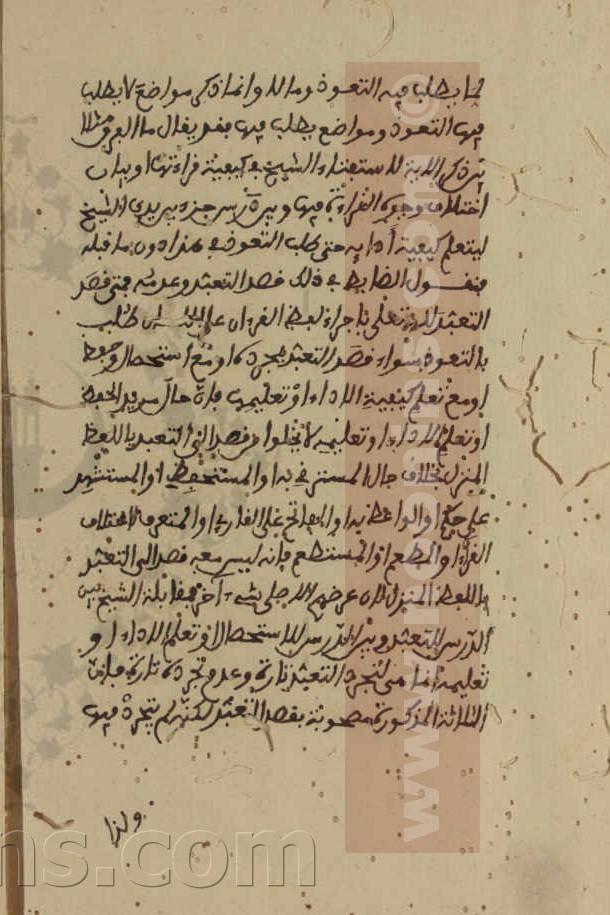 ما يطلب فيه التعوذ وما لا وانما ذكر مواضع لا يطلب
فيها التعوذ ومواضع يطلب فيها فقد يقال ما الفرق مثلا
بين ذكر الآية للاستفتاء الشيخ في كيفية قراءتها او بيان
اختلاف وجوه القراءة فيها وبين درس جزء بين يدي الشيخ
ليتعلم كيفية أدائه حتى طلب التعوذ في هذا دون ما قبله
فنقول الضابط في ذلك قصد التعبد وعدمه فمتى قصد
التعبد لله تعالى باجراء لفظ القرءان على اللسان طلب
بالتعوذ سواء قصد التعبد بمجرده او مع استحصال وحفظ
او مع تعلم كيفية الاداء او تعليمها فان حال مريد الحفظ
او تعلم الاداء او تعليمه لا يخلوا من قصد الى التعبد باللفظ
المنزل بخلاف حال المسترقي به او المستحفظ او المستشهد
على حكم او الواعظ به او الفاتح على القارئ او المتعرف لاختلاف
القراء او المطعم او المستطعم فإنه ليس معه قصد الى التعبد
باللفظ المنزل لان غرضهم الاجلى شيء آخر فمقابلة الشيخ بين
الدرس للتعبد وبين الدرس للاستحصال او تعلم الاداء او
تعليمه انما هي لتجرد التعبد تارة وعدم تجرده تارة فان
الثلاثة المذكورة مصحوبة بقصد التعبد لكنه لم يتجرد فيها
ولذا
www.
ns.com